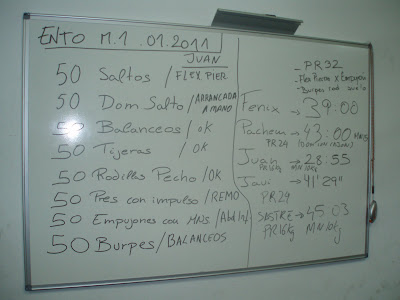 ENTO M.1 .01.2011
JUAN
50 Saltos / FLEX PIER
50 Dom Salto / ARRANCADA A MANO
50 Balanceos / OK
50 Tijeras / OK
50 Rodillas Pecho / OK
50 Pres con impulso / REMO
50 Empujones con MNS /
50 Burpes / BALANCEOS
- PR32
- Flex Pierna x Empujón
- Burpes
Fenix → 39:00
Pachem → 43:00
PR24
Juan → 28:55
PR16Kg
Javi → 41'29"
PR24
SASTRE → 45:03
PR16Kg MN 10kg